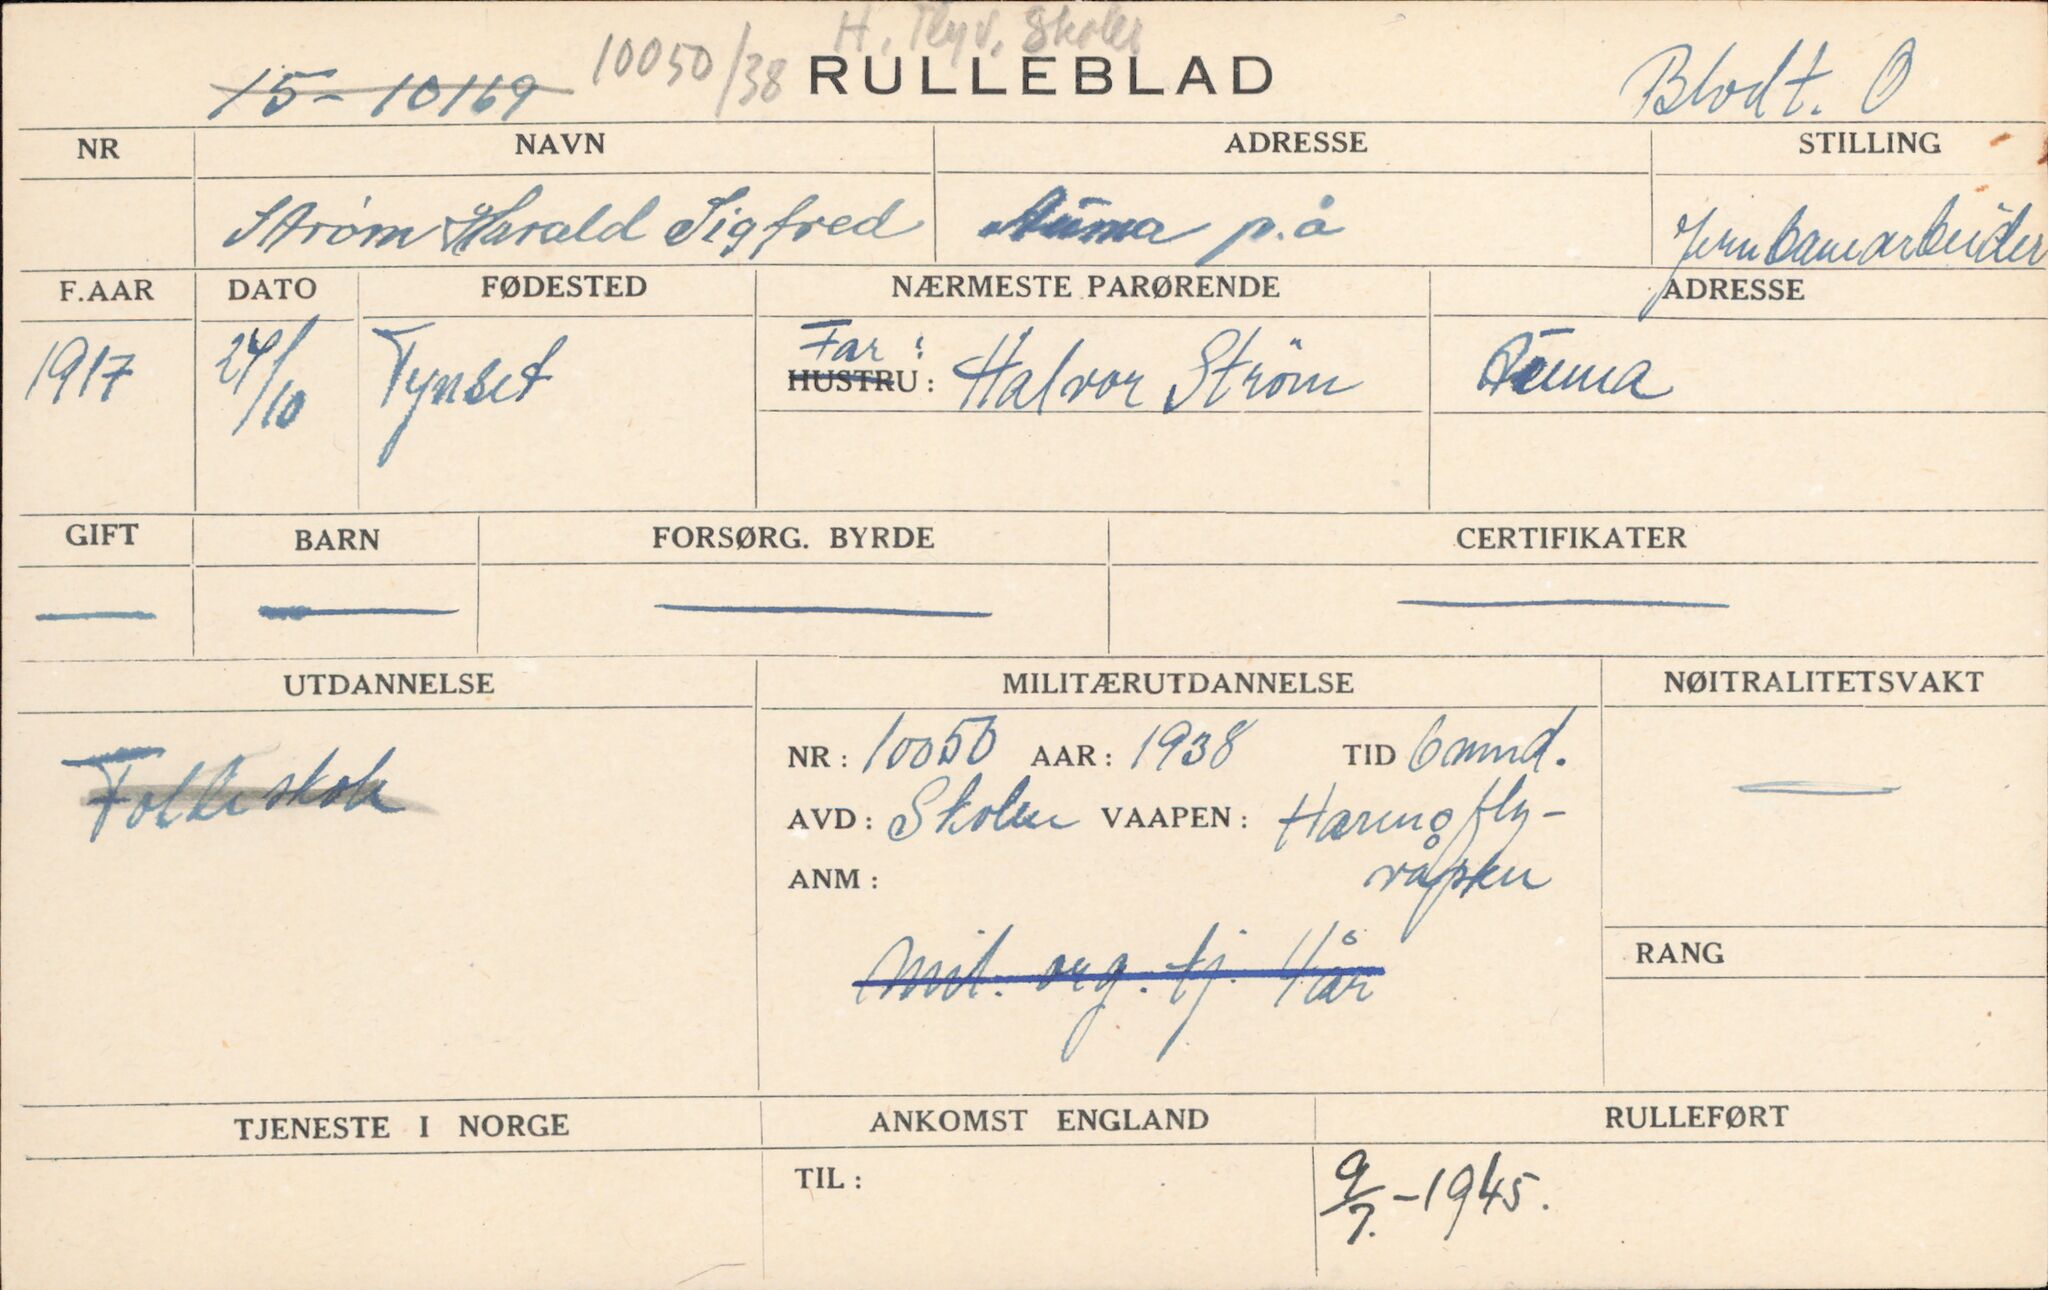 H. Flyv. Skolen
15-10169 10050/38 RULLEBLAD Blodt. O
NR NAVN ADRESSE STILLING
Strøm Harald Sigfred Auma p.å Jernbanearbeider
F.AAR DATO FØDESTED NÆRMESTE PARØRENDE ADRESSE
1917 24/10 Tynset Far: HUSTRU: Halvor Strøm Auma
GIFT BARN FORSØRG. BYRDE CERTIFIKATER
UTDANNELSE MILITÆRUTDANNELSE NØITRALITETSVAKT
Folkeskole
NR: 10050 AAR: 1938 TID 6 mnd.
AVD: Skolen VAAPEN: Hærens fly-
ANM: våpen
Mil. org. tj. 4 år
RANG
TJENESTE I NORGE ANKOMST ENGLAND RULLEFØRT
TIL: 9/7.-1945.